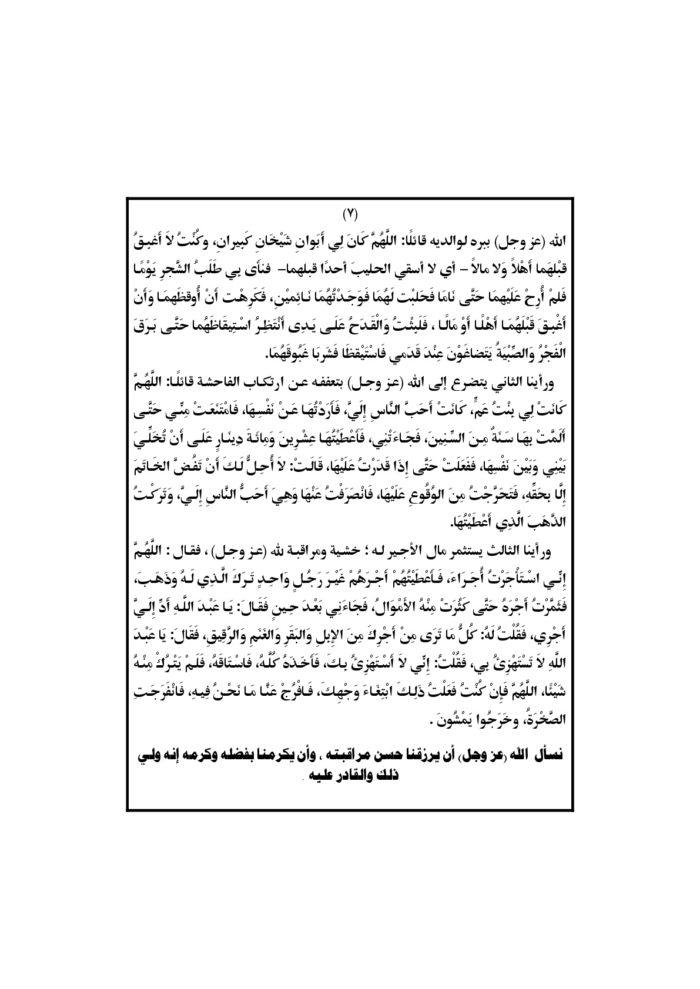 (٧)
الله (عز وجل) ببره لوالديه قائلًا: اللَّهُمَّ كَانَ لِي أَبَوانِ شَيْخَانِ كَبِيرانِ، وكُنْتُ لاَ أَغبِقُ
قبْلهَما أَهْلاً وَلا مالاً – أي لا أسقي الحليبَ أحدًا قبلهما– فنأَى بِي طَلَبُ الشَّجرِ يَوْمًا
فَلمْ أُرِحْ عَلَيْهمَا حَتَّى نَامَا فَحَلبْت لَهُمَا فَوَجَدْتُهُمَا نَائِميْنِ، فَكَرِهْت أَنْ أُوقِظَهمَا وَأَنْ
أَغْبِقَ قَبْلَهُمَا أَهْلًا أَوْ مَالًا ، فَلَبِثْتُ وَالْقَدَحُ عَلَى يَدِى أَنْتَظِرُ اسْتِيقَاظَهُما حَتَّى بَرَقَ
الْفَجْرُ وَالصِّبْيَةُ يَتَضاغَوْنَ عِنْدَ قَدَمي فَاسْتَيْقظَا فَشَربَا غَبُوقَهُمَا.
ورأينا الثاني يتضرع إلى الله (عز وجل) بتعففه عن ارتكاب الفاحشة قائلًا: اللَّهُمَّ
كَانَتْ لِي بِنْتُ عَمٍّ، كَانَتْ أَحَبَّ النَّاسِ إِلَيَّ، فَأَرَدْتُهَا عَنْ نَفْسِهَا، فَامْتَنَعَتْ مِنِّي حَتَّى
أَلَمَّتْ بِهَا سَنَةٌ مِنَ السِّنِينَ، فَجَاءَتْنِي، فَأَعْطَيْتُهَا عِشْرِينَ وَمِائَةَ دِينَارٍ عَلَى أَنْ تُخَلِّيَ
بَيْنِي وَبَيْنَ نَفْسِهَا، فَفَعَلَتْ حَتَّى إِذَا قَدَرْتُ عَلَيْهَا، قَالَتْ: لاَ أُحِلُّ لَكَ أَنْ تَفُضَّ الخَاتَمَ
إِلَّا بِحَقِّهِ، فَتَحَرَّجْتُ مِنَ الوُقُوعِ عَلَيْهَا، فَانْصَرَفْتُ عَنْهَا وَهِيَ أَحَبُّ النَّاسِ إِلَيَّ، وَتَرَكْتُ
الذَّهَبَ الَّذِي أَعْطَيْتُهَا.
ورأينا الثالث يستثمر مال الأجير له ؛ خشية ومراقبة لله (عز وجل) ، فقال : اللَّهُمَّ
إِنِّي اسْتَأْجَرْتُ أُجَرَاءَ، فَأَعْطَيْتُهُمْ أَجْرَهُمْ غَيْرَ رَجُلٍ وَاحِدٍ تَرَكَ الَّذِي لَهُ وَذَهَبَ،
فَثَمَّرْتُ أَجْرَهُ حَتَّى كَثُرَتْ مِنْهُ الأَمْوَالُ، فَجَاءَنِي بَعْدَ حِينٍ فَقَالَ: يَا عَبْدَ اللَّهِ أَدِّ إِلَيَّ
أَجْرِي، فَقُلْتُ لَهُ: كُلُّ مَا تَرَى مِنْ أَجْرِكَ مِنَ الإِبِلِ وَالبَقَرِ وَالغَنَمِ وَالرَّقِيقِ، فَقَالَ: يَا عَبْدَ
اللَّهِ لاَ تَسْتَهْزِئُ بِي، فَقُلْتُ: إِنِّي لاَ أَسْتَهْزِئُ بِكَ، فَأَخَذَهُ كُلَّهُ، فَاسْتَاقَهُ، فَلَمْ يَتْرُكْ مِنْهُ
شَيْئًا، اللَّهُمَّ فَإِنْ كُنْتُ فَعَلْتُ ذَلِكَ ابْتِغَاءَ وَجْهِكَ، فَافْرُجْ عَنَّا مَا نَحْنُ فِيهِ، فَانْفَرَجَتِ
الصَّخْرَةُ، وخَرَجُوا يَمْشُونَ .
نسأل الله (عز وجل) أن يرزقنا حسن مراقبته ، وأن يكرمنا بفضله وكرمه إنه ولي
ذلك والقادر عليه .